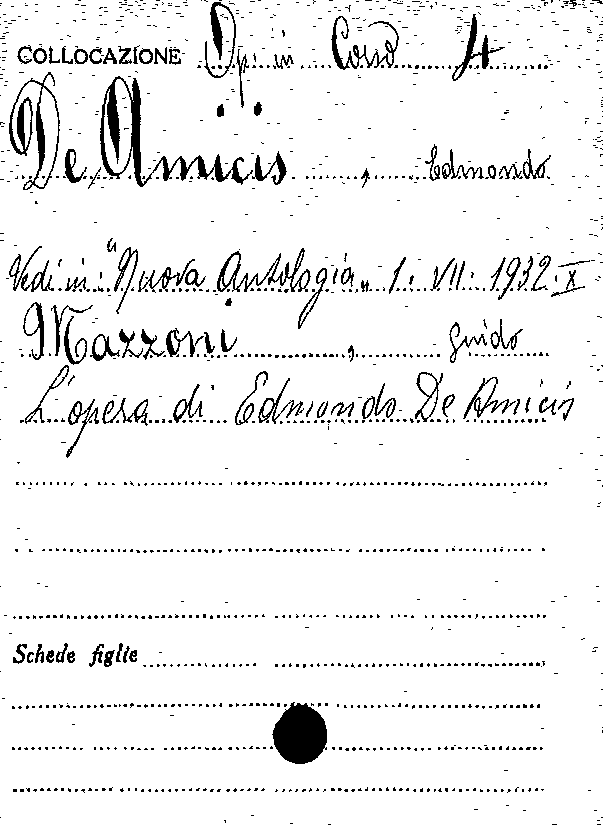 COLLOCAZIONE Op. in Corso 4
De Amicis, Edmondo
Vedi in: "Nuova Antologia„ 1. VII. 1932. X
Mazzoni, Guido
L'opera di Edmondo De Amicis
Schede figlie